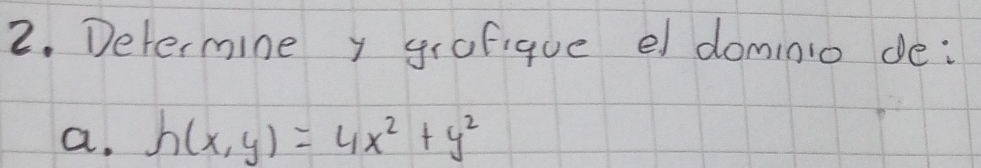 2. Determine y grafique el dominio de:
a. h(x,y) = 4x² + y²